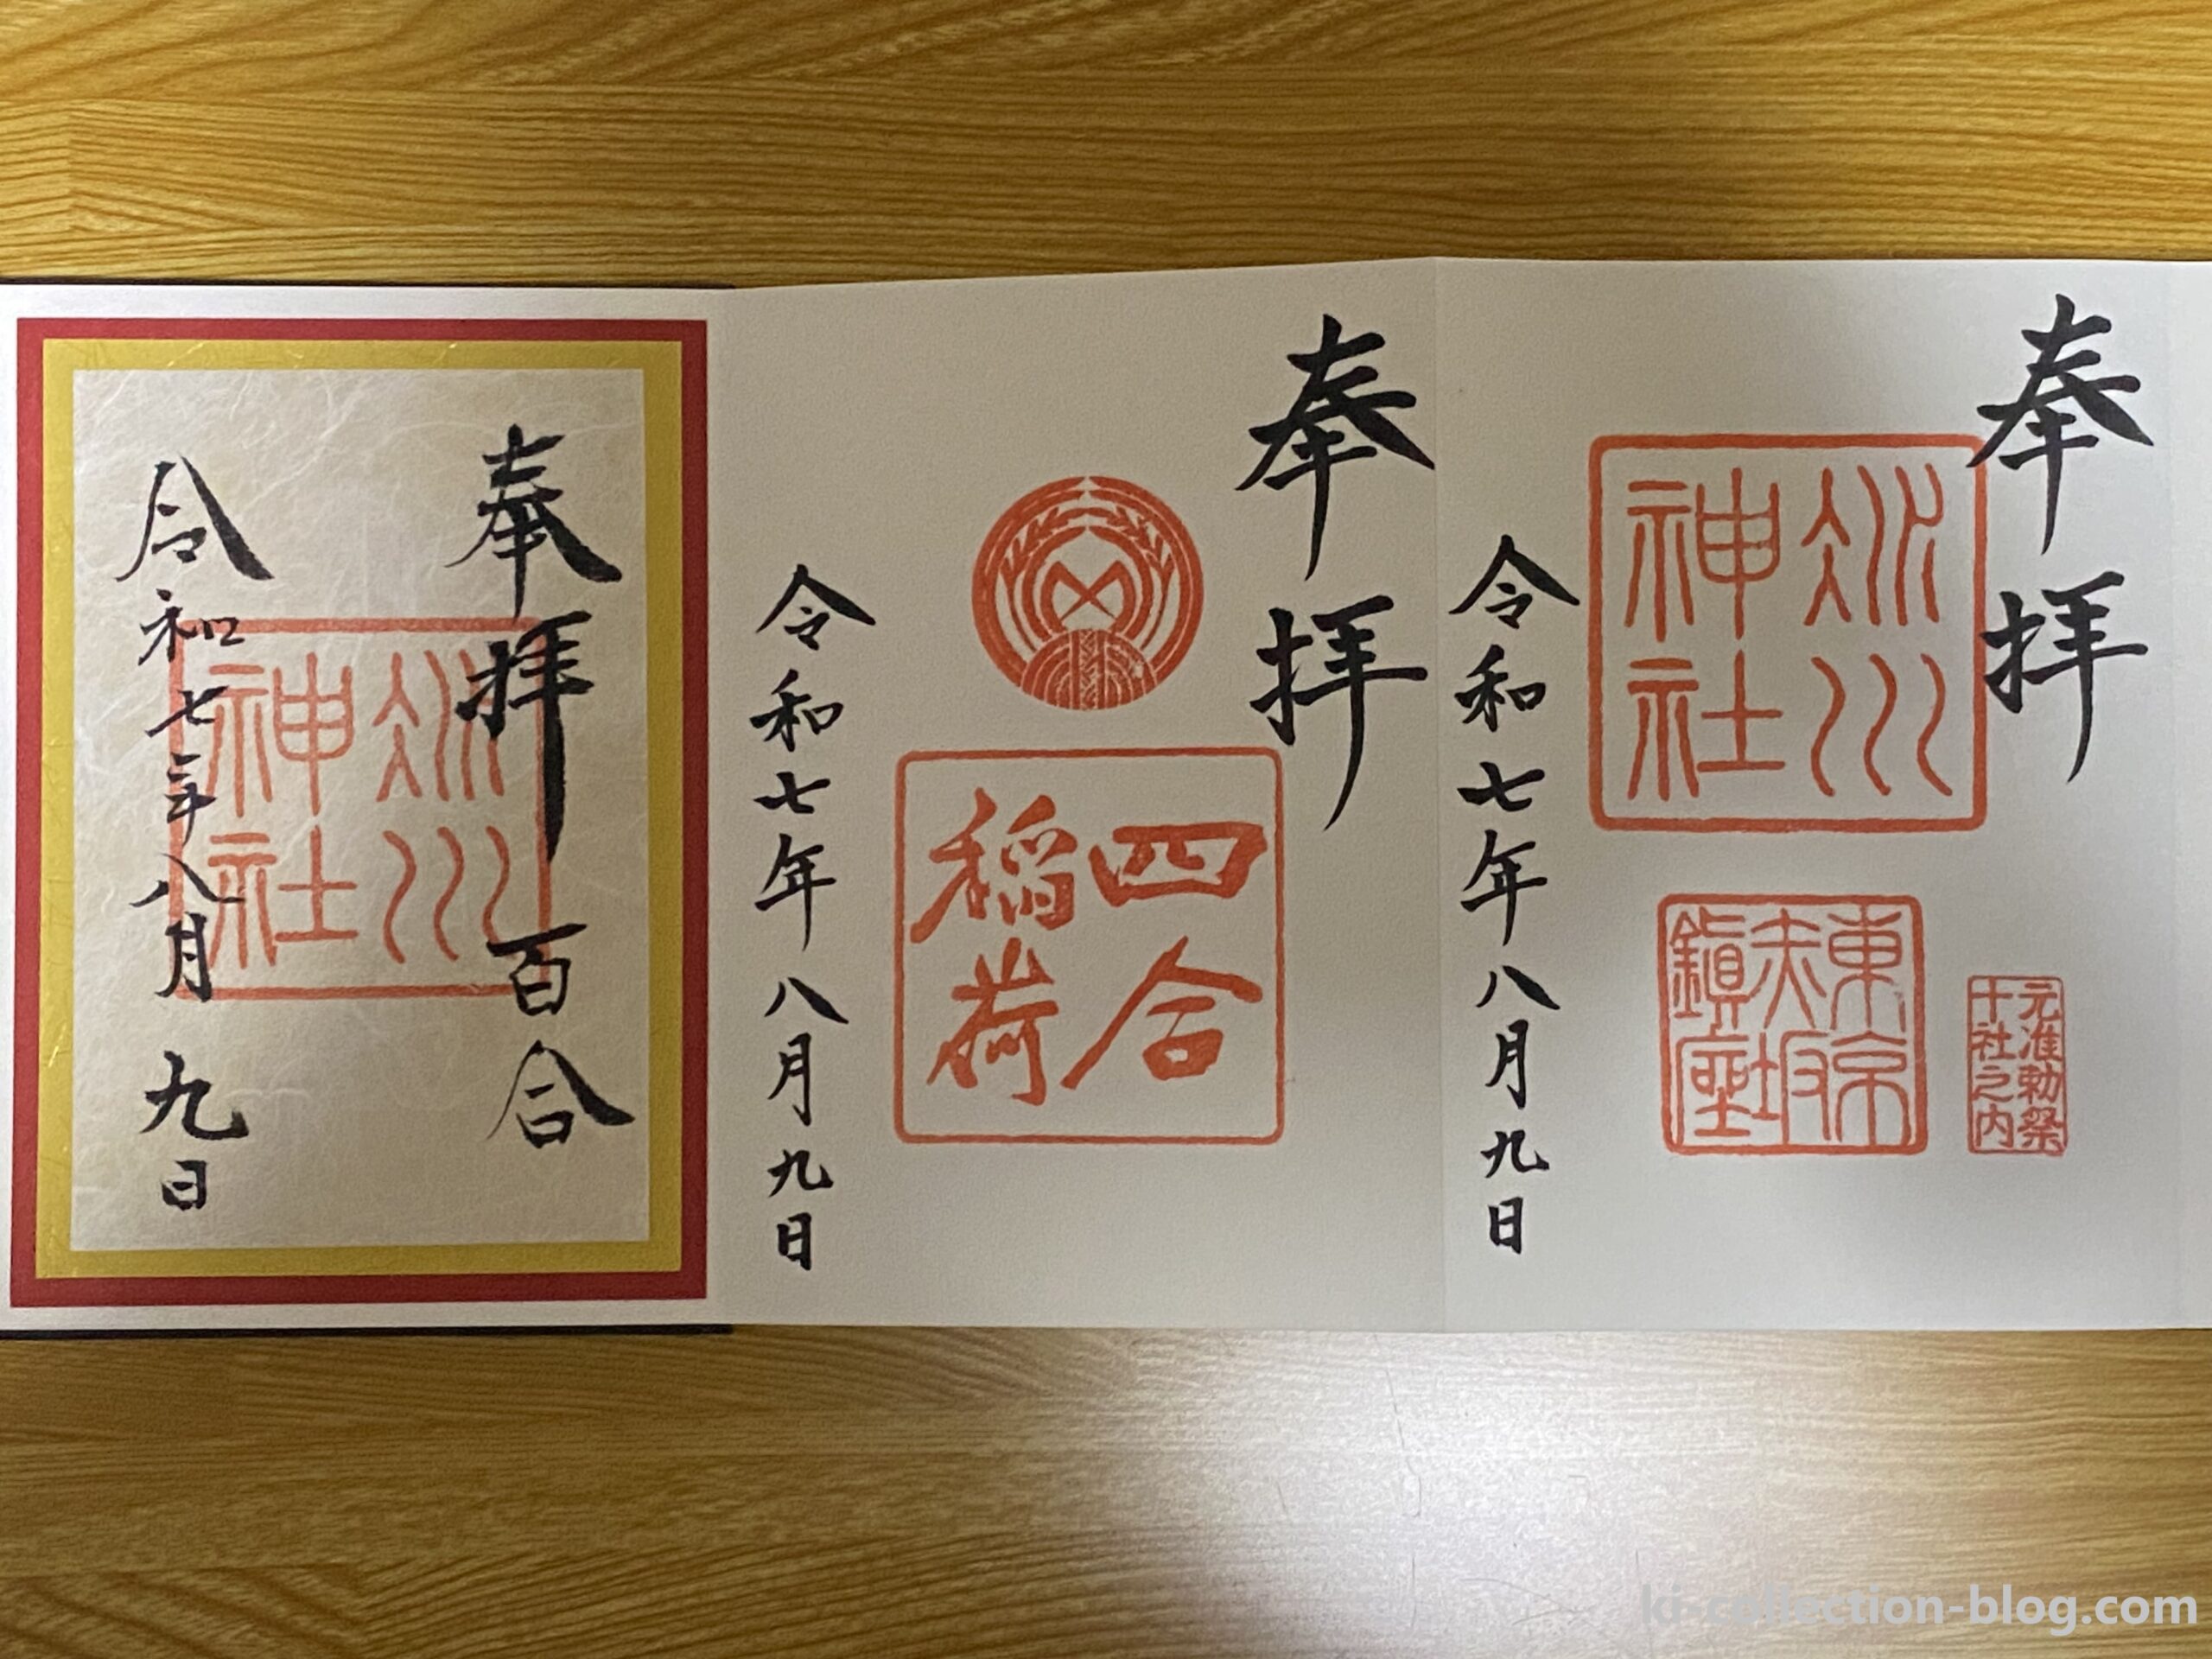 奉拝
氷川
神社
東京
赤坂
鎭座
元准勅祭
十社之内
令和七年八月九日
奉拝
四合
稲荷
令和七年八月九日
奉拝 百合
氷川
神社
令和七年八月九日
ki-collection-blog.com